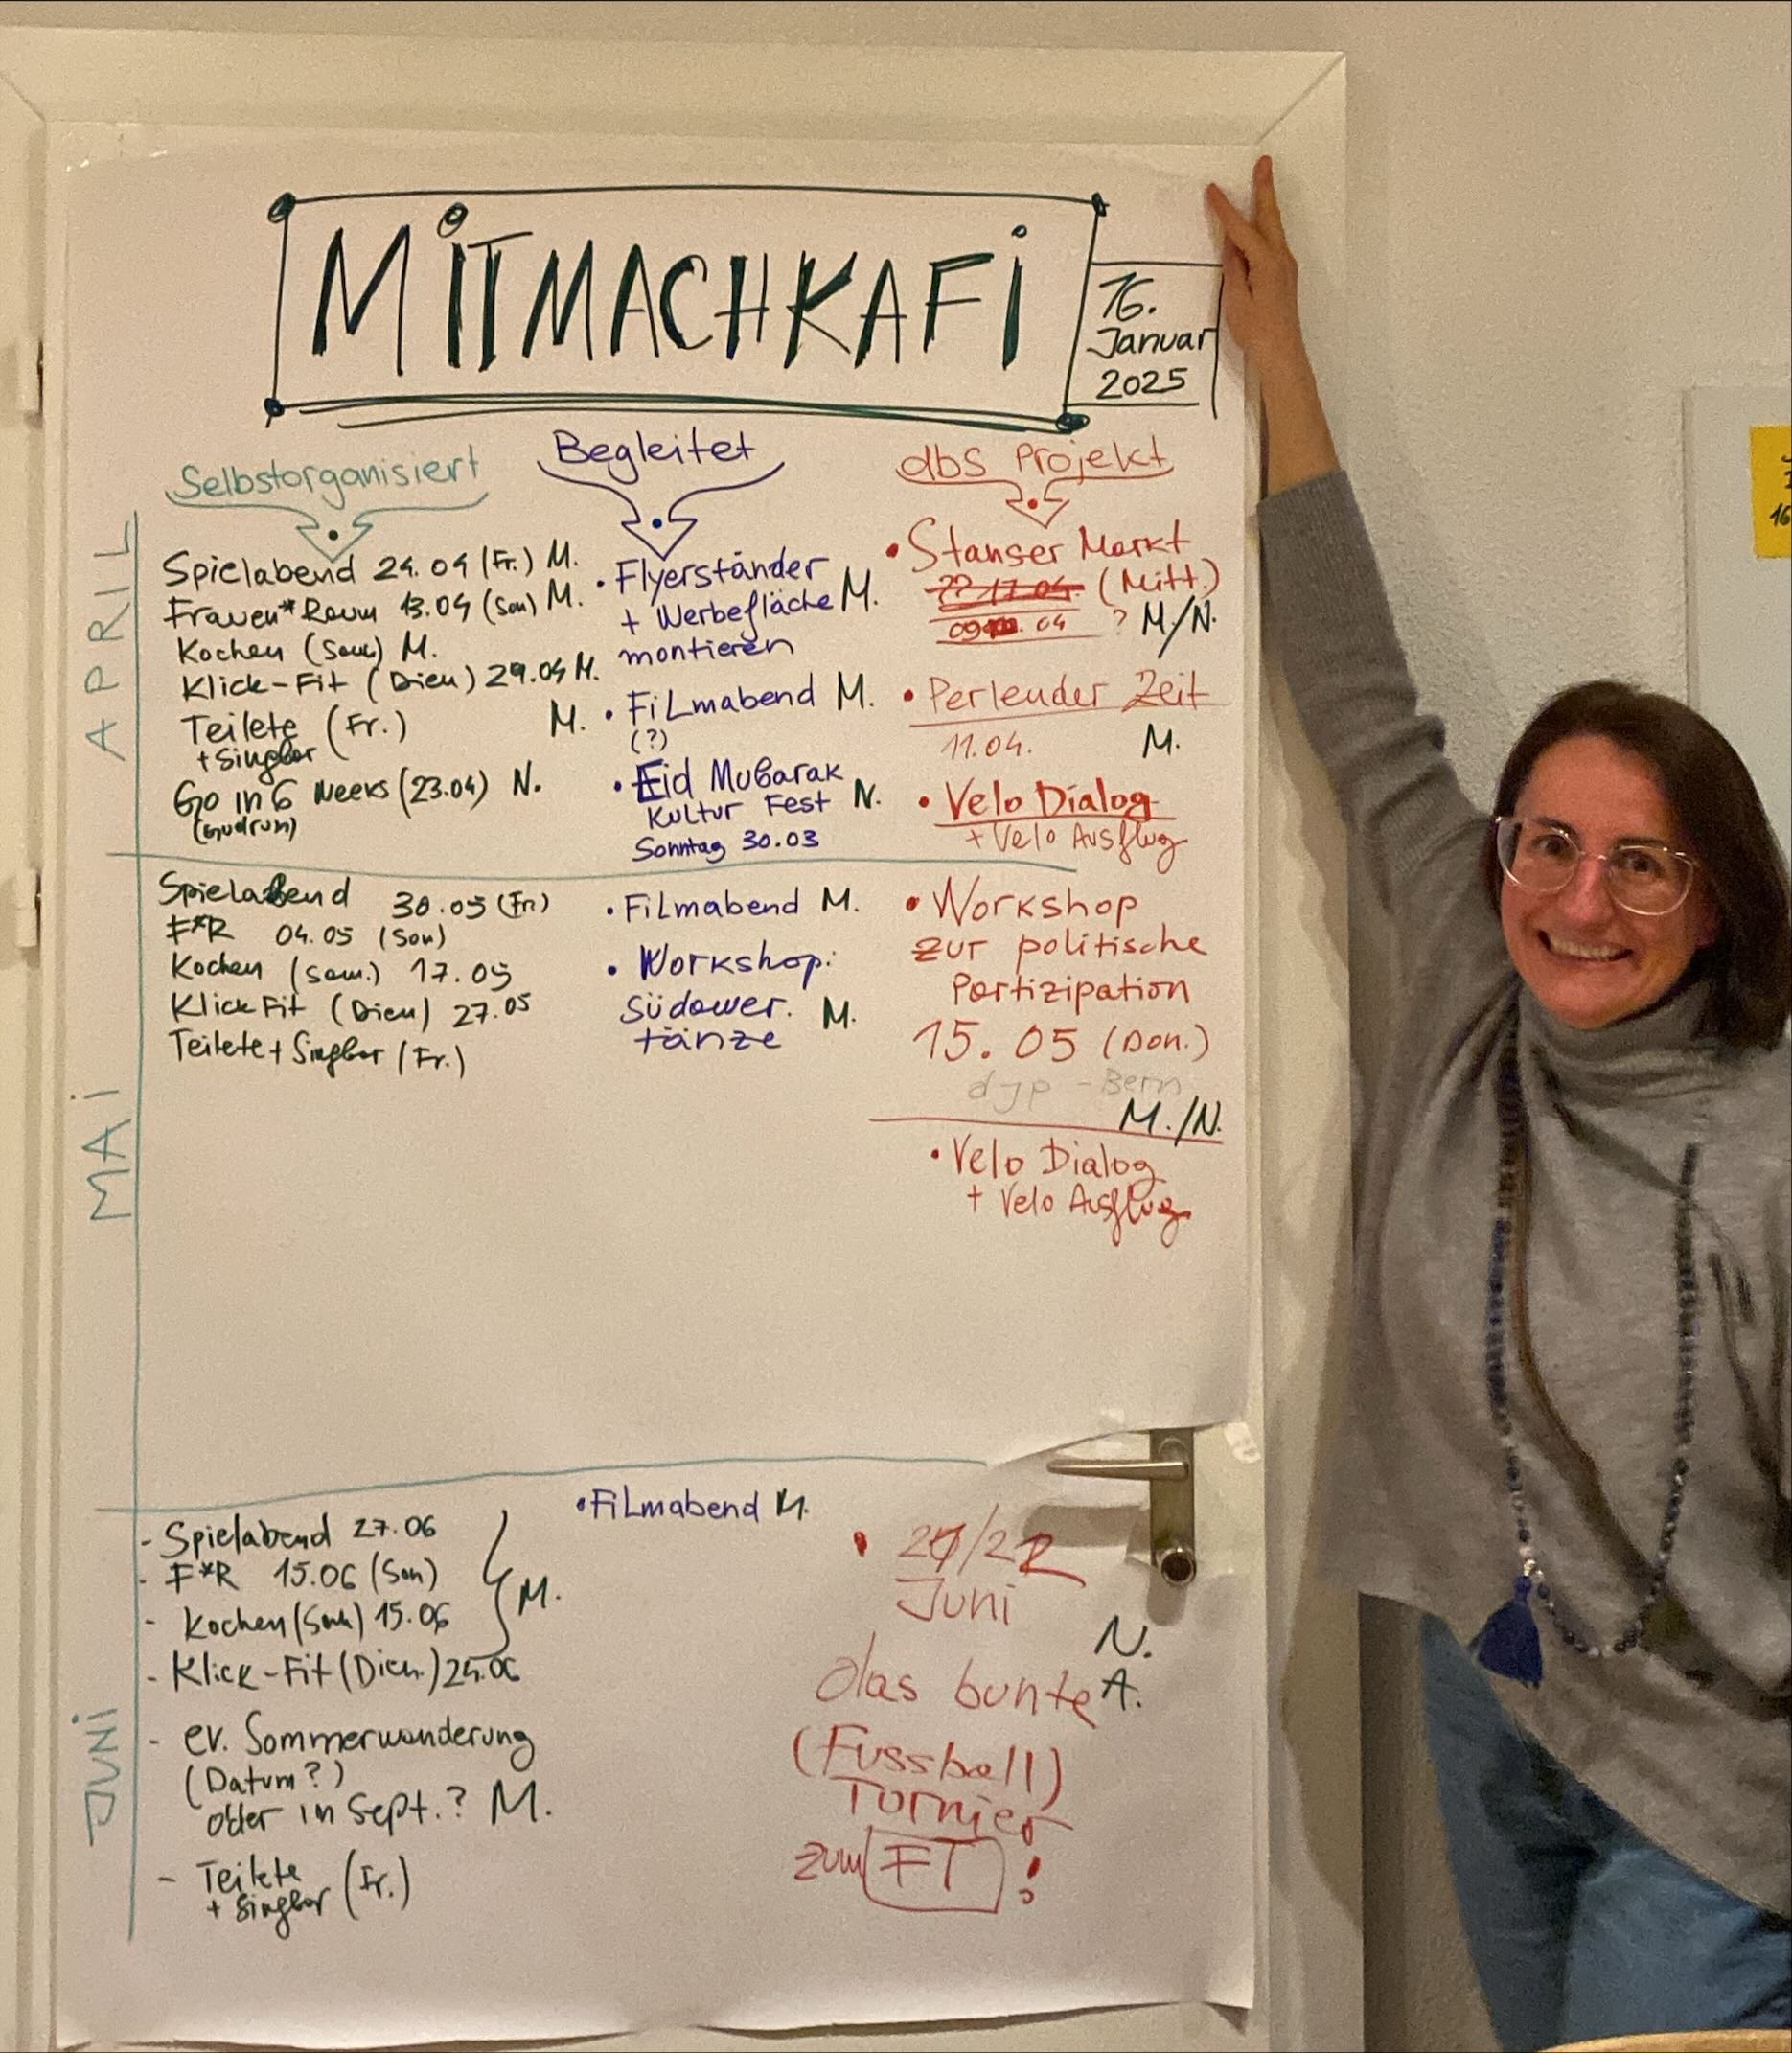 MITMACHKAFI
16.
Januar
2025
Selbstorganisiert
Begleitet
dbS Projekt
APRIL
Spielabend 24.04 (Fr.) M.
Frauen*Raum 13.04 (Son) M.
Kochen (Sam) M.
Klick-Fit (Dien) 29.04 M.
Teilete (Fr.) M.
+ Singbar
Go in 6 Weeks (23.04) N.
(Gudrun)
• Flyerständer
+ Werbefläche M.
montieren
• Filmabend M.
(?)
• Eid Mubarak
Kultur Fest N.
Sonntag 30.03
• Stanser Markt
?? 17.04. (Mitt.)
09 . 04 ? M/N.
• Perlen der Zeit
11.04. M.
• Velo Dialog
+ Velo Ausflug
MAI
Spielabend 30.05 (Fr)
F*R 04.05 (Son)
Kochen (Sam.) 17.05
Klick Fit (Dien) 27.05
Teilete + Singbar (Fr.)
• Filmabend M.
• Workshop:
Südamer. M.
tänze
• Workshop
zur politische
Partizipation
15.05 (Don.)
djp - Bern
M./N.
• Velo Dialog
+ Velo Ausflug
JUNI
- Spielabend 27.06
- F*R 15.06 (Son)
- Kochen (Sam) 15.06
M.
- Klick-Fit (Dien.) 24.06
- ev. Sommerwanderung
(Datum?)
oder in Sept.? M.
- Teilete
+ Singbar (Fr.)
• Filmabend M.
• 21/22
Juni
N.
das bunte A.
(Fussball)
Turnier
zum FT !
16